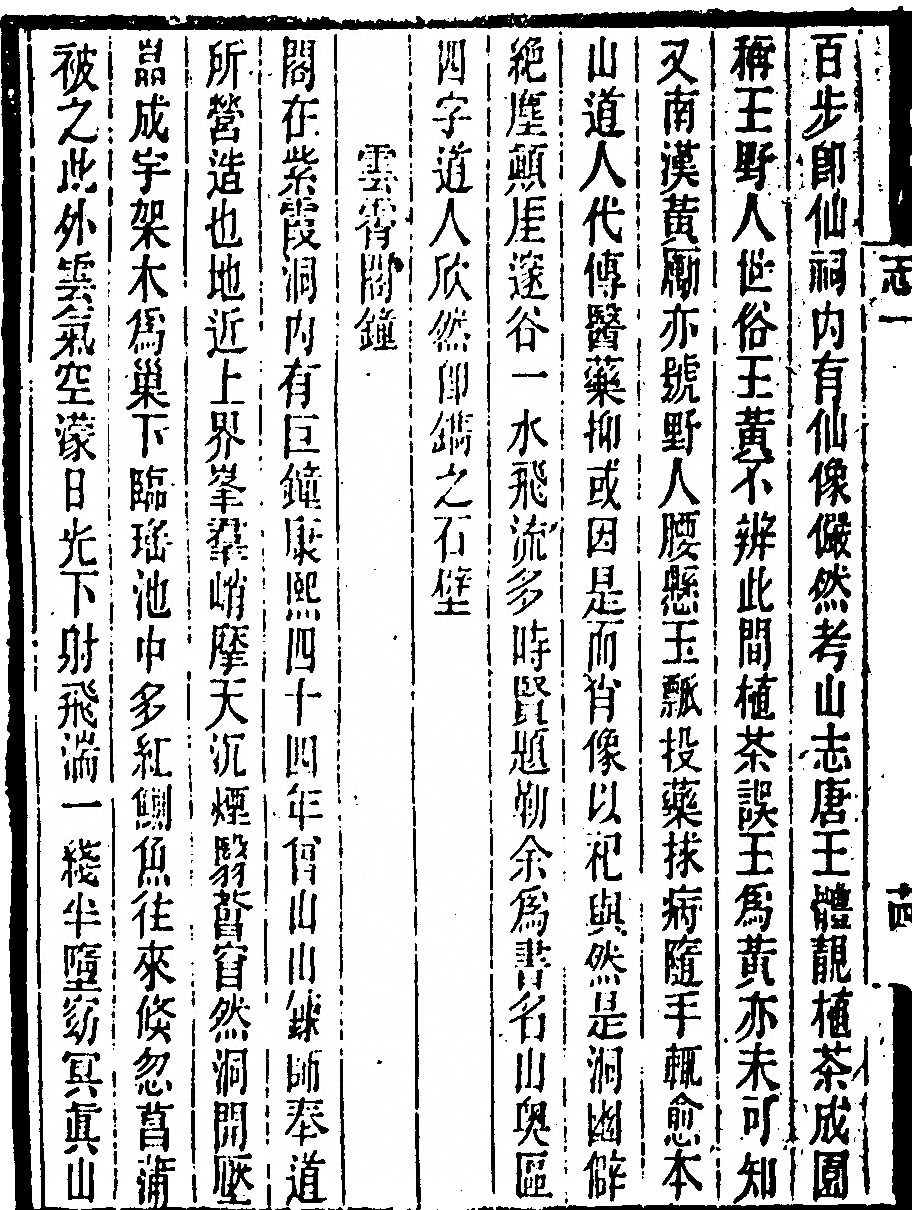 志一
十四
百步卽仙祠内有仙像儼然考山志唐王體靚植茶成園
稱王野人世俗王黃不辨此間植茶誤王為黃亦未可知
又南漢黃勵亦號野人腰懸玉瓢投藥捄病隨手輒愈本
山道人代傳醫藥抑或因是而肖像以祀與然是洞幽僻
絶塵顛厓邃谷一水飛流多時賢題勒余為書名山奥區
四字道人欣然卽鐫之石壁
雲霄閣鐘
閣在紫霞洞内有巨鐘康熙四十四年曾山山錬師奉道
所營造也地近上界峯羣峭摩天沉煙翳蒼窅然洞開壓
嵓成宇架木為巢下臨瑤池中多紅鯽魚往來倏忽菖蒲
被之此外雲氣空濛日光下射飛湍一綫半墮窈冥真山